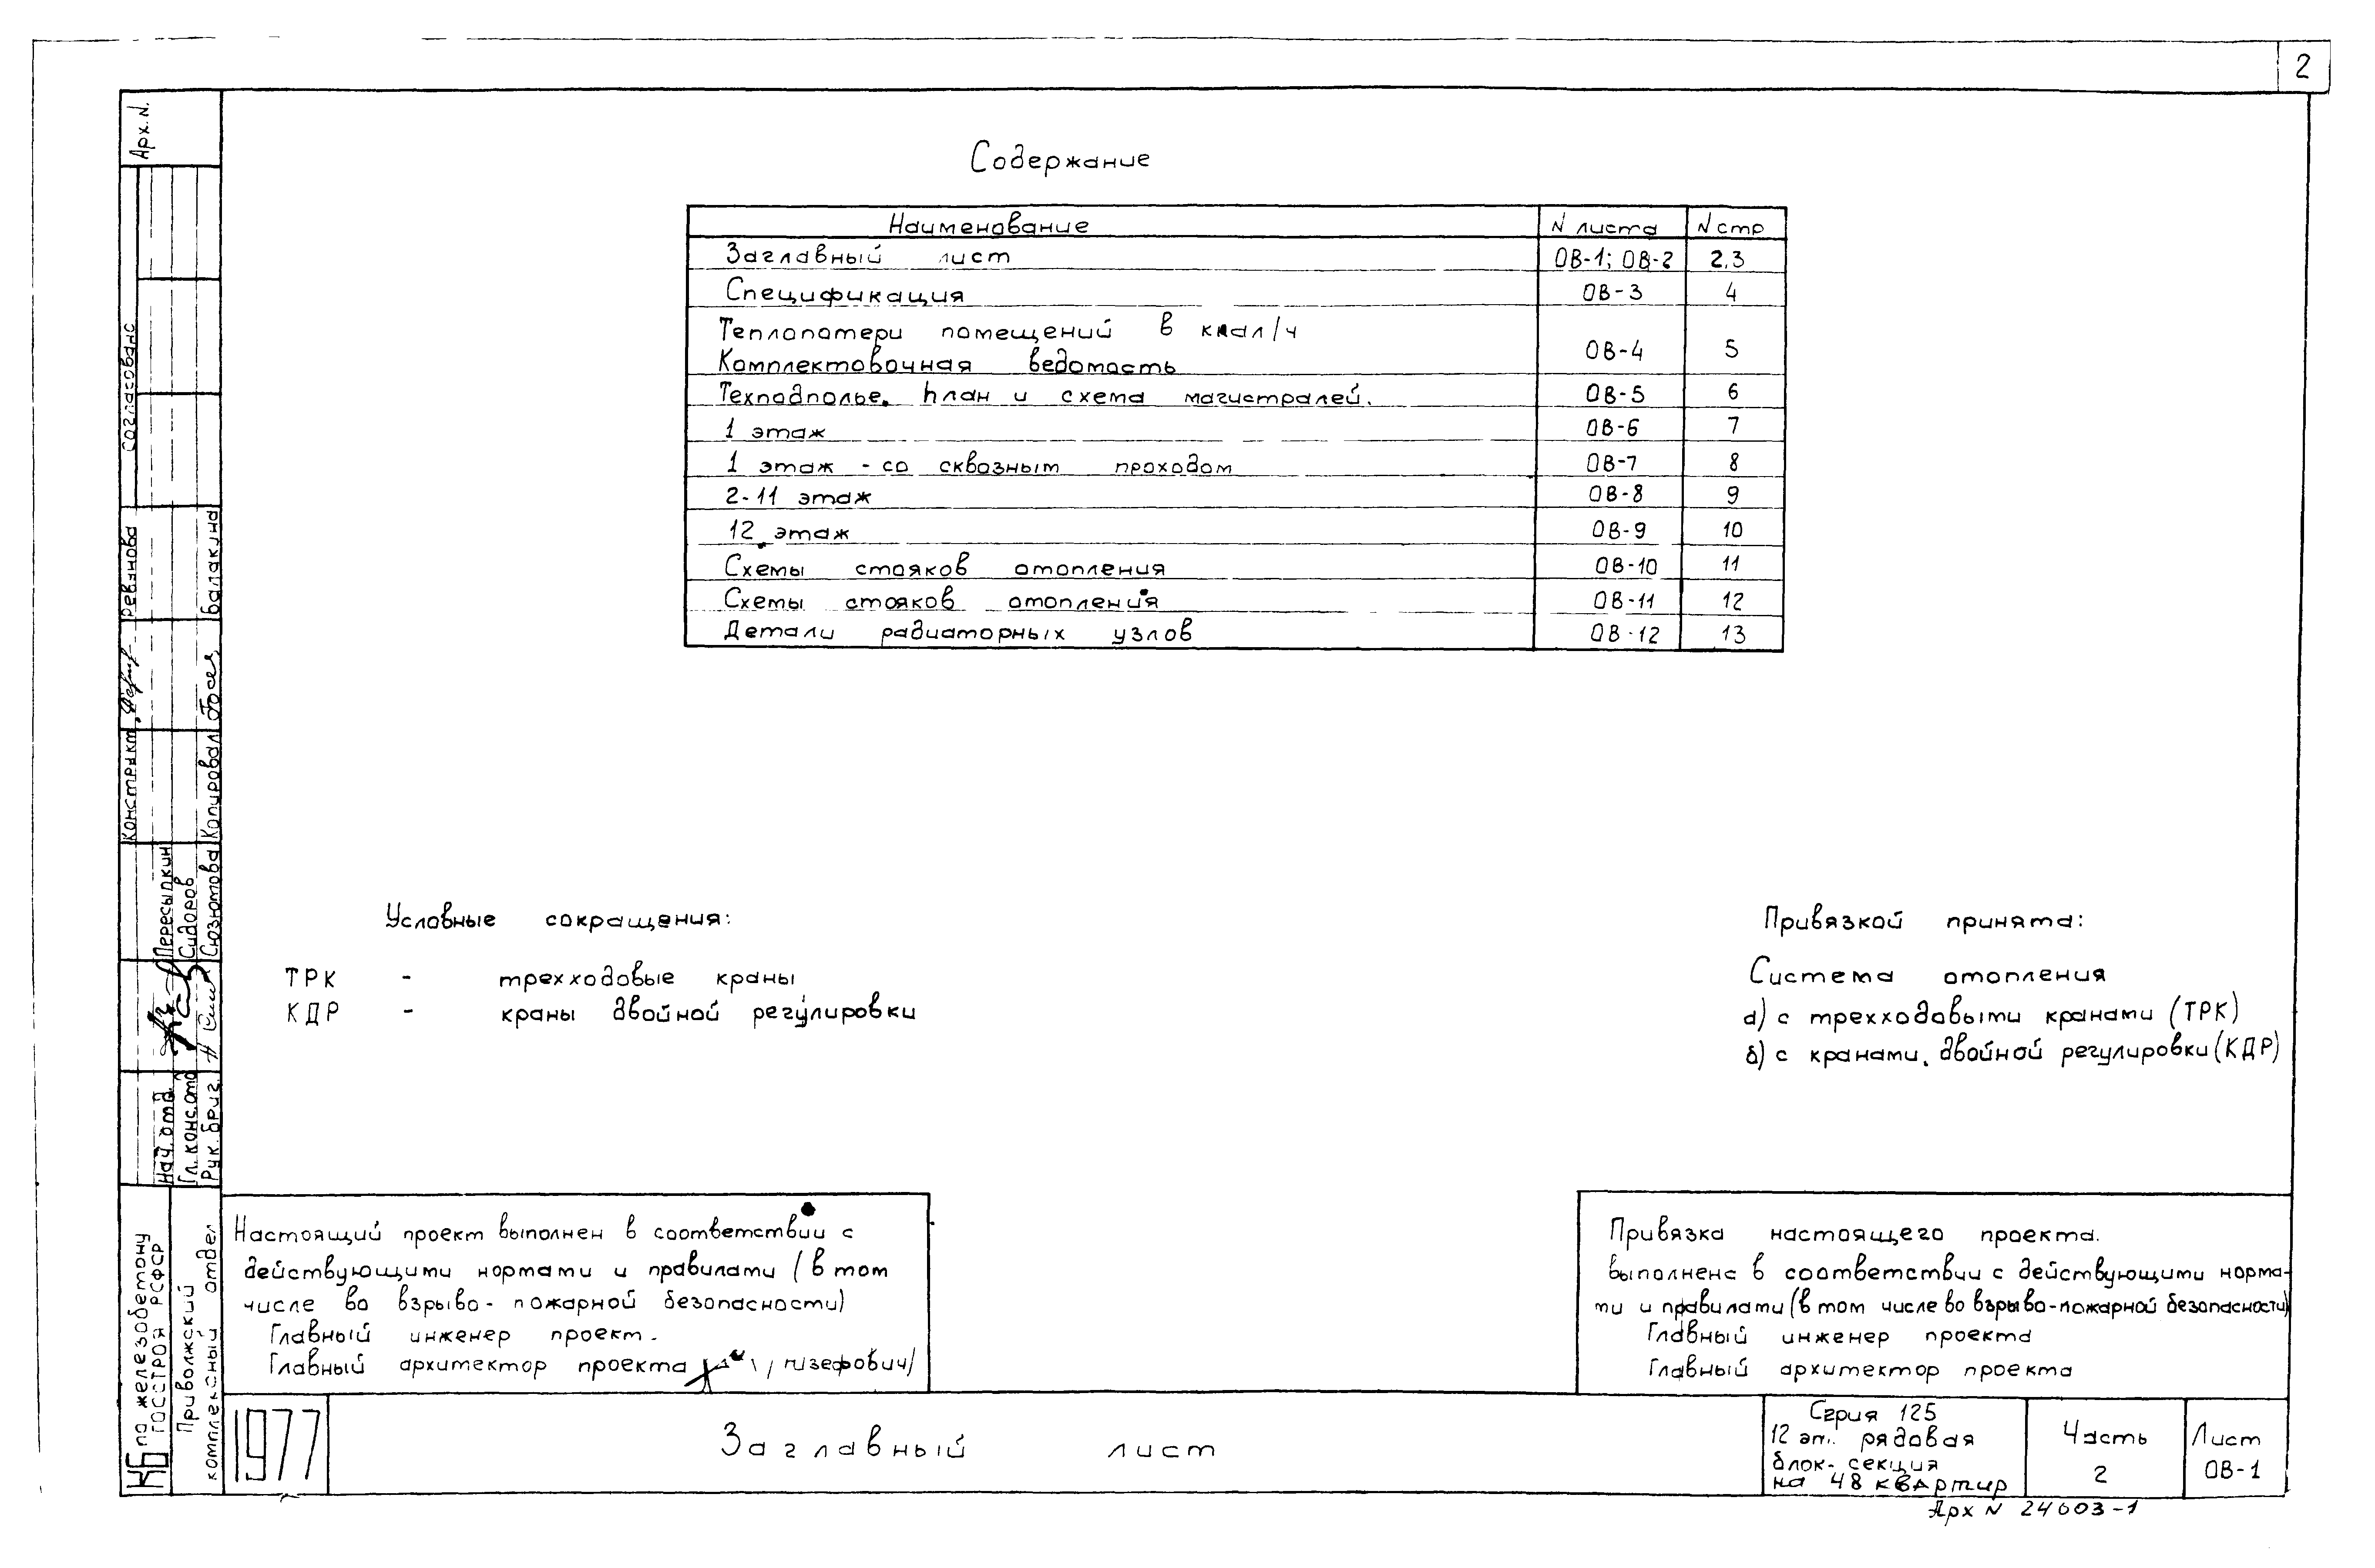 2
Содержание
Наименование N листа N стр
Заглавный лист ОВ-1; ОВ-2 2,3
Спецификация ОВ-3 4
Теплопотери помещений в ккал/ч
Комплектовочная ведомость ОВ-4 5
Техподполье. План и схема магистралей. ОВ-5 6
1 этаж ОВ-6 7
1 этаж - со сквозным проходом ОВ-7 8
2-11 этаж ОВ-8 9
12 этаж ОВ-9 10
Схемы стояков отопления ОВ-10 11
Схемы стояков отопления ОВ-11 12
Детали радиаторных узлов ОВ-12 13
Условные сокращения:
ТРК - трехходовые краны
КДР - краны двойной регулировки
Привязкой принята:
Система отопления
а) с трехходовыми кранами (ТРК)
б) с кранами двойной регулировки (КДР)
Настоящий проект выполнен в соответствии с
действующими нормами и правилами (в том
числе во взрыво-пожарной безопасности)
Главный инженер проект.
Главный архитектор проекта
Привязка настоящего проекта.
выполнена в соответствии с действующими норма-
ми и правилами (в том числе во взрыво-пожарной безопасности)
Главный инженер проекта
Главный архитектор проекта
1977
Заглавный лист
Серия 125
12 эт. рядовая
блок-секция
на 48 квартир
Часть
2
Лист
ОВ-1
Арх N 24603-1
Арх. N.
согласовано
Конструкт.
Ревянова
Копировал
Балакина
Нач. отд. Пересыпкин
Гл. конс. отд Сидоров
Рук. бриг. Сюзюмова
КБ по железобетону
Госстроя РСФСР
Приволжский
комплексный отдел